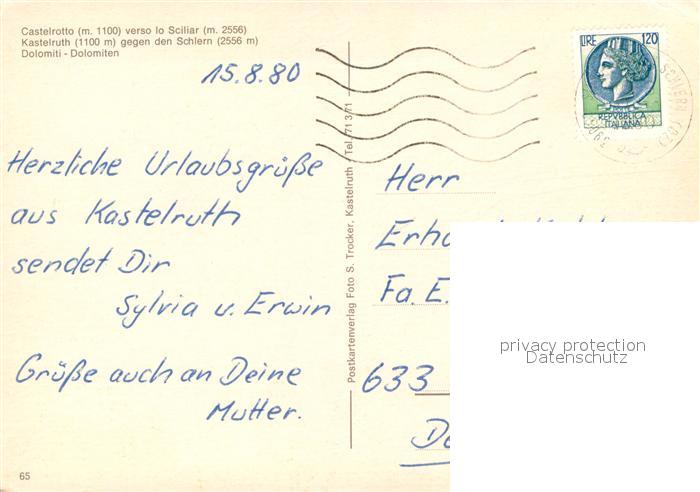 Castelrotto (m. 1100) verso lo Sciliar (m. 2556)
Kastelruth (1100 m) gegen den Schlern (2556 m)
Dolomiti - Dolomiten
15.8.80
LIRE 120
REPVBBLICA
ITALIANA
Herzliche Urlaubsgrüße
aus Kastelruth
sendet Dir
Sylvia u. Erwin
Grüße auch an Deine
Mutter.
65
Postkartenverlag Foto S. Trocker, Kastelruth Tel. 71 3 71
Herr
Fa. E.
633
privacy protection
Datenschutz